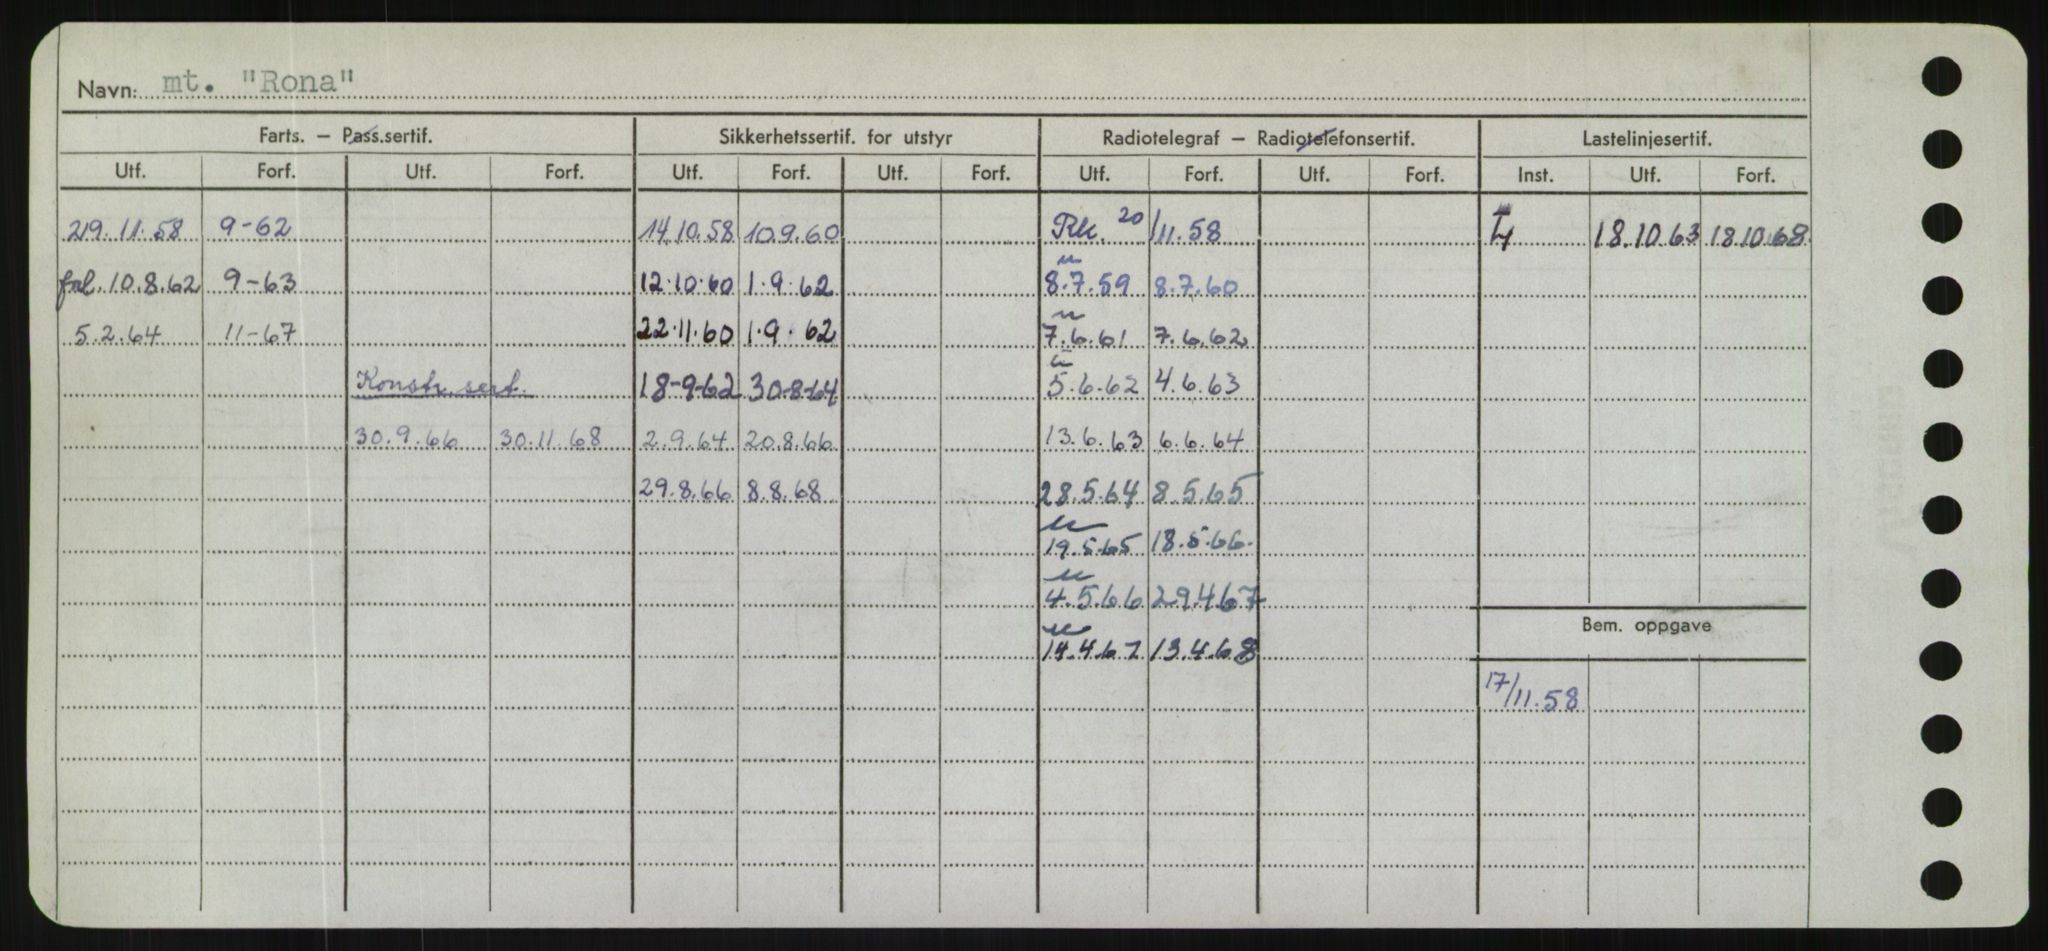 Navn: mt. "Rona"
Farts. – Pass.sertif. Sikkerhetssertif. for utstyr Radiotelegraf – Radiotelefonsertif. Lastelinjesertif.
Utf. Forf. Utf. Forf. Utf. Forf. Utf. Forf. Utf. Forf. Utf. Forf. Inst. Utf. Forf.
29.11.58 9-62 14.10.58 10.9.60 20/11.58 18.10.63 18.10.68
10.8.62 9-63 12.10.60 1.9.62 8.7.59 8.7.60
5.2.64 11-67 22.11.60 1.9.62 7.6.61 7.6.62
Konstr. sert. 18-9-62 30-8-64 5.6.62 4.6.63
30.9.66 30.11.68 2.9.64 20.8.66 13.6.63 6.6.64
29.8.66 8.8.68 28.5.64 8.5.65
19.5.65 18.5.66.
4.5.66 29.4.67
Bem. oppgave
14.4.67 13.4.68
17/11.58